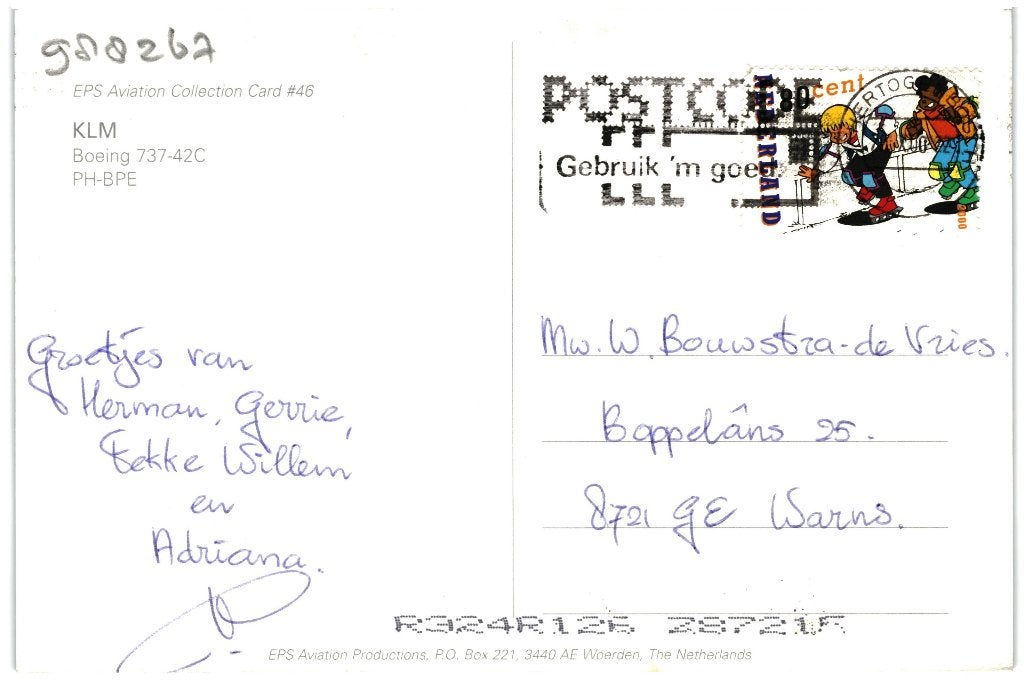 988267
EPS Aviation Collection Card #46
KLM
Boeing 737-42C
PH-BPE
POSTCODE
Gebruik 'm goed.
NEDERLAND
80 cent
2000
ERTOG
Groetjes van
Herman, Gerrie,
Fekke Willem
en
Adriana.
Mw. W. Bouwstra-de Vries.
Boppelâns 25.
8721 GE Warns.
EPS Aviation Productions, P.O. Box 221, 3440 AE Woerden, The Netherlands